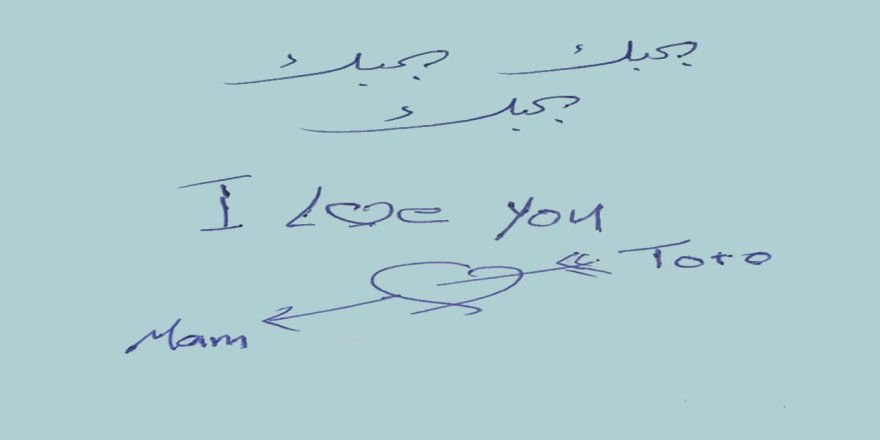 بحبك بحبك
بحبك
I Love You
Toto
Mam